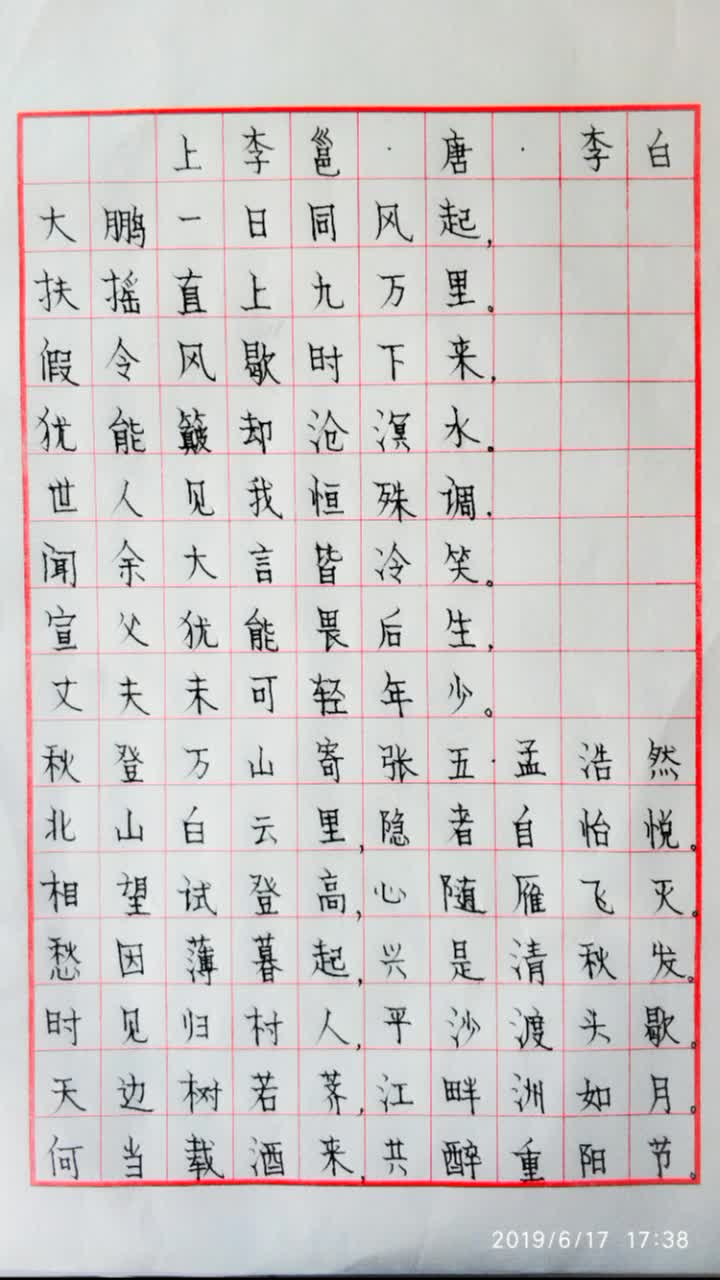 上李邕·唐·李白
大鹏一日同风起,
扶摇直上九万里。
假令风歇时下来,
犹能簸却沧溟水。
世人见我恒殊调,
闻余大言皆冷笑。
宣父犹能畏后生,
丈夫未可轻年少。
秋登万山寄张五·孟浩然
北山白云里,隐者自怡悦。
相望试登高,心随雁飞灭。
愁因薄暮起,兴是清秋发。
时见归村人,平沙渡头歇。
天边树若荠,江畔洲如月。
何当载酒来,共醉重阳节。
2019/6/17 17:38